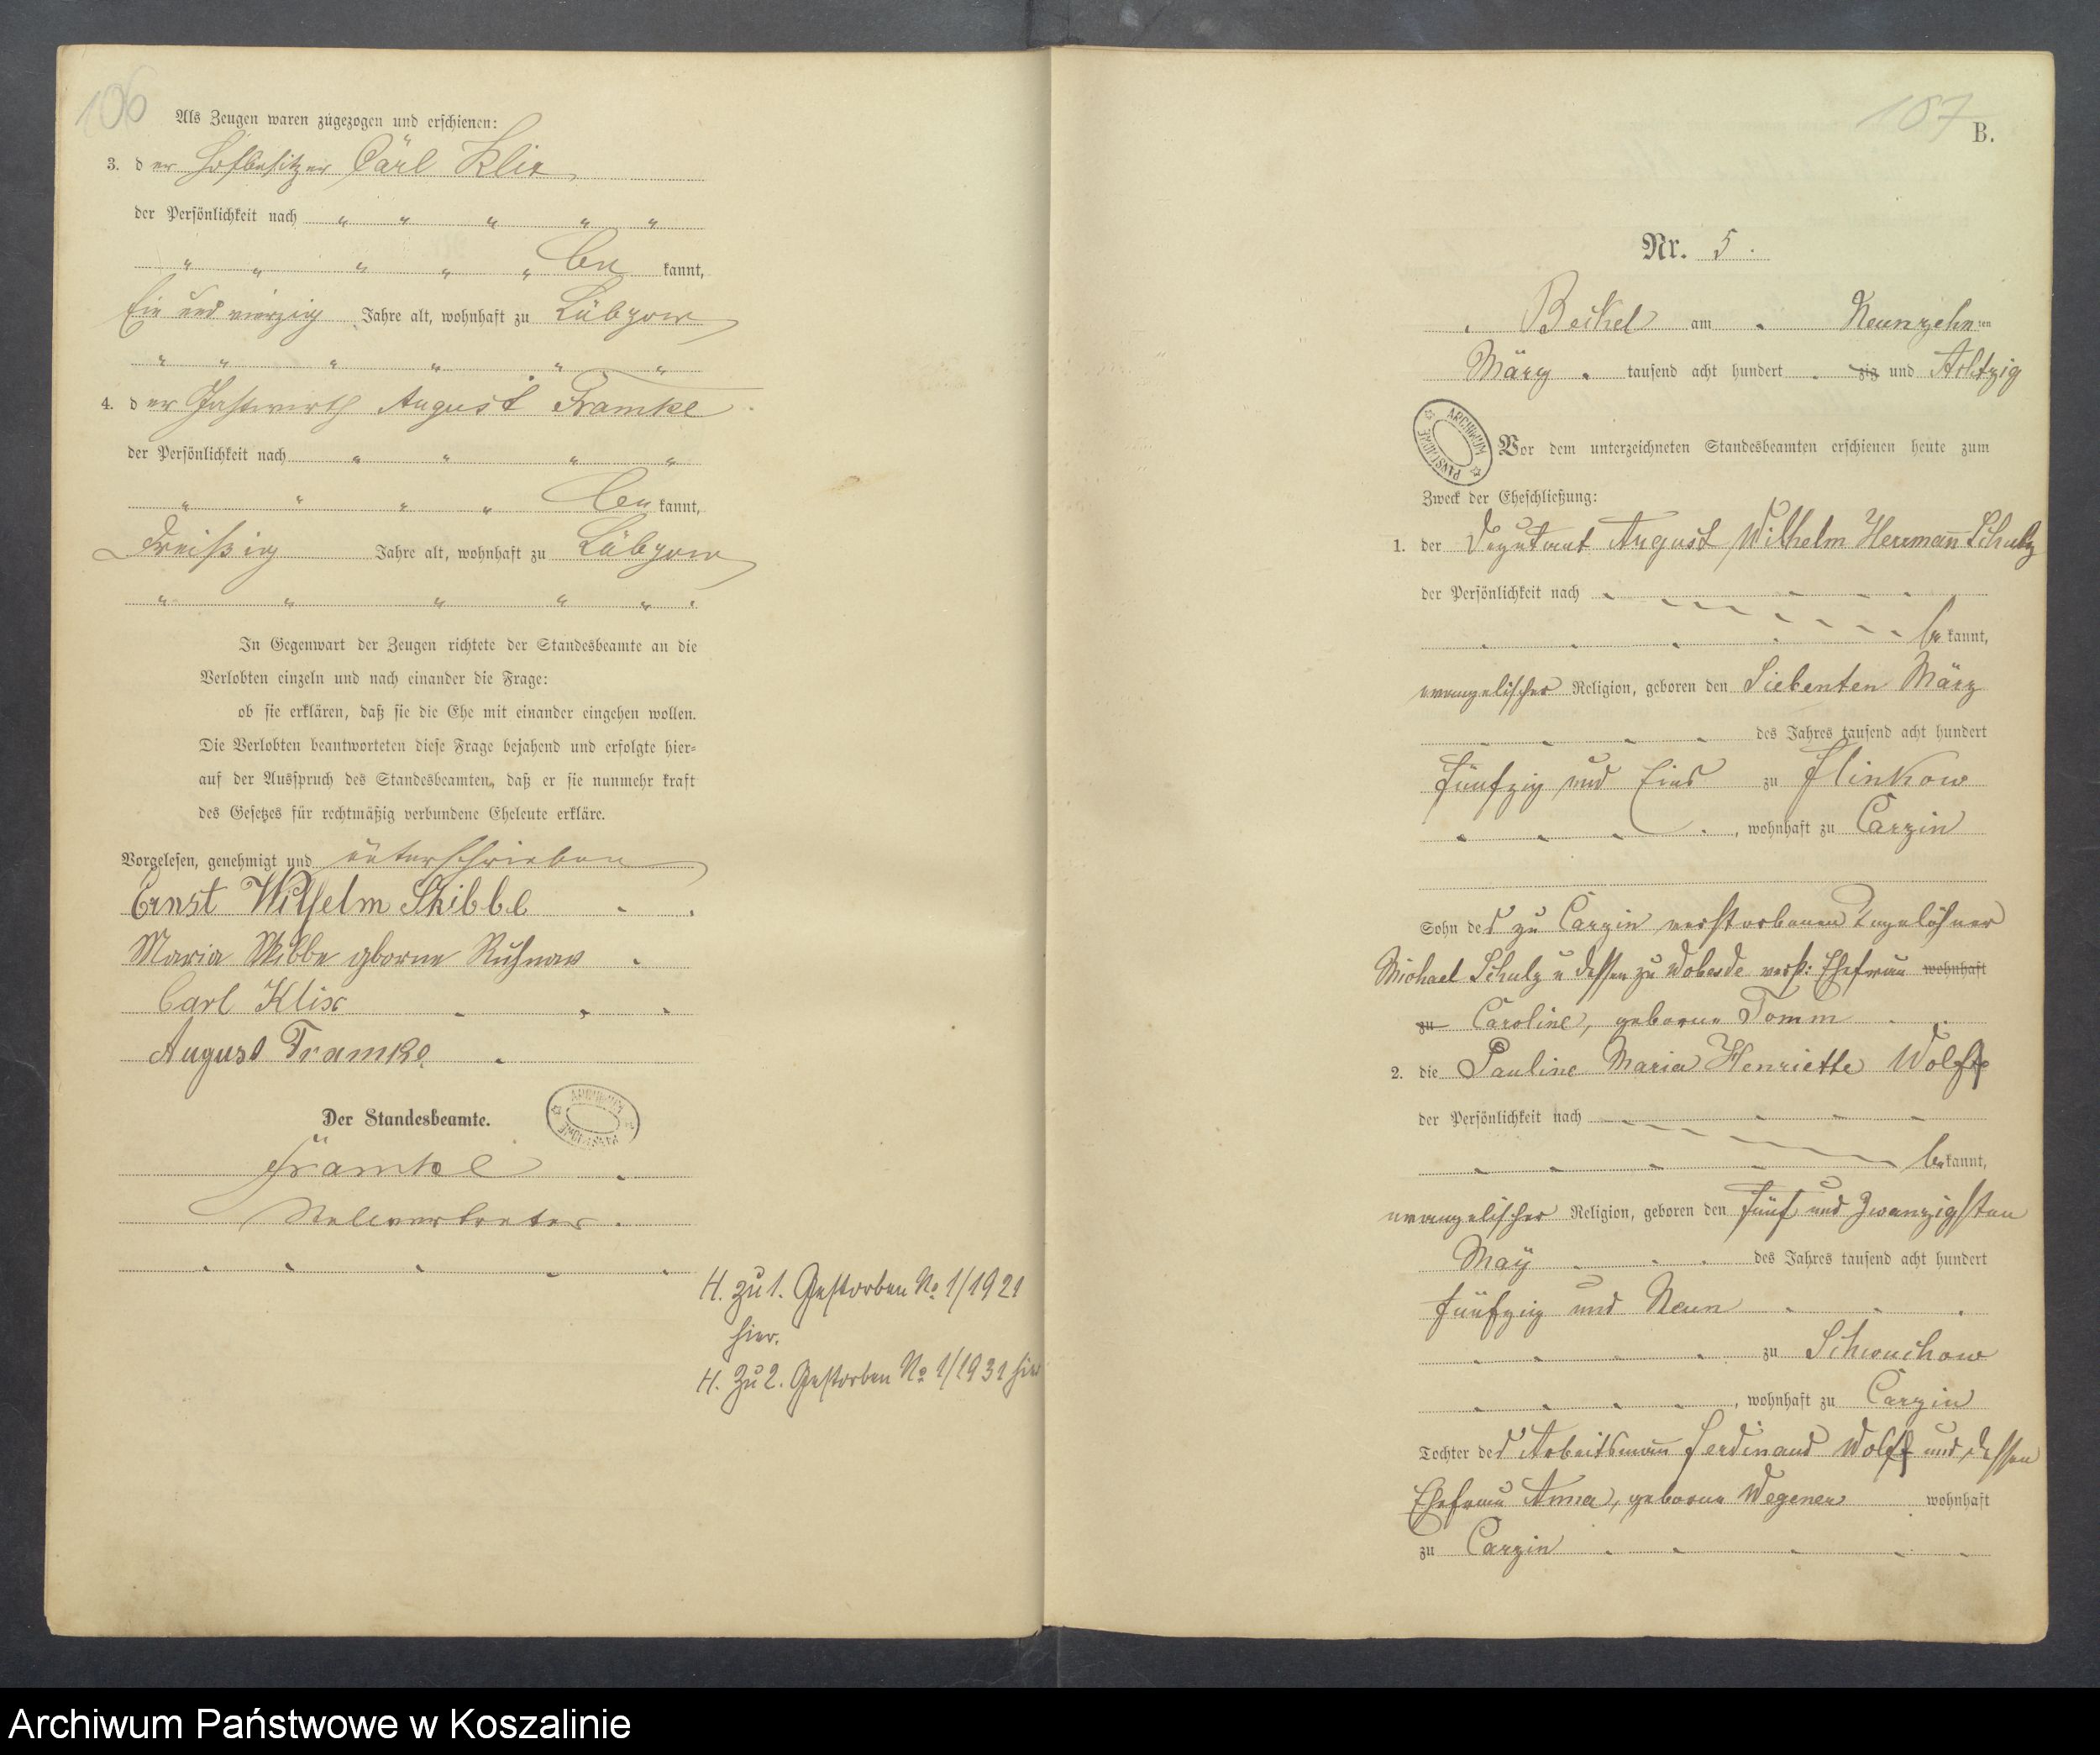 106
Als Zeugen waren zugezogen und erschienen:
3. der Hofbesitzer Carl Klix
der Persönlichkeit nach " " " " "
" " " " " be kannt,
Ein und vierzig Jahre alt, wohnhaft zu Lübzow
" " " " " "
4. der Gastwirth August Framke
der Persönlichkeit nach " " " "
" " " " be kannt,
Dreißig Jahre alt, wohnhaft zu Lübzow
" " " " " .
In Gegenwart der Zeugen richtete der Standesbeamte an die
Verlobten einzeln und nach einander die Frage:
ob sie erklären, daß sie die Ehe mit einander eingehen wollen.
Die Verlobten beantworteten diese Frage bejahend und erfolgte hier=
auf der Ausspruch des Standesbeamten, daß er sie nunmehr kraft
des Gesetzes für rechtmäßig verbundene Eheleute erkläre.
Vorgelesen, genehmigt und unterschrieben
Ernst Wilhelm Skibbe
Maria Skibbe geborne Ruhnow
Carl Klix
August Framke
Der Standesbeamte.
ARCHIWUM PAŃSTWOWE
Framke
Stellvertreter.
H. zu 1. Gestorben No 1/1921
hier.
H. Zu 2. Gestorben No 1/1931 hier
107
B.
Nr. 5.
Beckel am Neunzehn ten
März tausend acht hundert zig und Achtzig
ARCHIWUM PAŃSTWOWE
Vor dem unterzeichneten Standesbeamten erschienen heute zum
Zweck der Eheschließung:
1. der Deputant August Wilhelm Herrmann Schulz
der Persönlichkeit nach
be kannt,
evangelischer Religion, geboren den Siebenten März
des Jahres tausend acht hundert
Fünfzig und Eins zu Flinkow
, wohnhaft zu Carzin
Sohn des zu Carzin verstorbenen Tagelöhner
Michael Schulz u dessen zu Wobesde verst: Ehefrau wohnhaft
zu Caroline, geborne Tomm
2. die Pauline Maria Henriette Wolff
der Persönlichkeit nach
be kannt,
evangelischer Religion, geboren den Fünf und Zwanzigsten
May des Jahres tausend acht hundert
Fünfzig und Neun
zu Schwuchow
, wohnhaft zu Carzin
Tochter des Arbeitsmann Ferdinand Wolff und dessen
Ehefrau Anna, geborne Wegener wohnhaft
zu Carzin
Archiwum Państwowe w Koszalinie